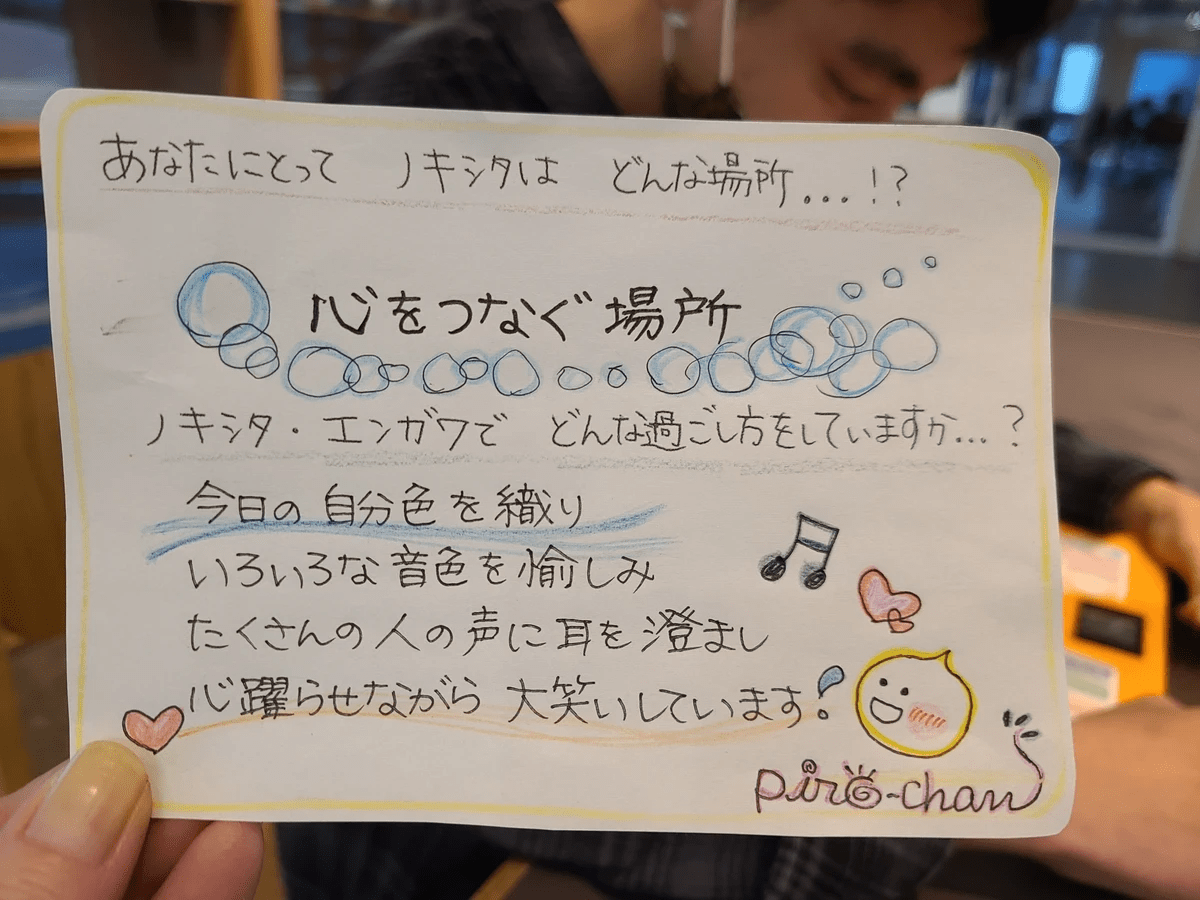 あなたにとって ノキシタは どんな場所...!?
心をつなぐ場所
ノキシタ・エンガワで どんな過ごし方をしていますか...?
今日の自分色を織り
いろいろな音色を愉しみ
たくさんの人の声に耳を澄まし
心躍らせながら 大笑いしています!
piro-chan